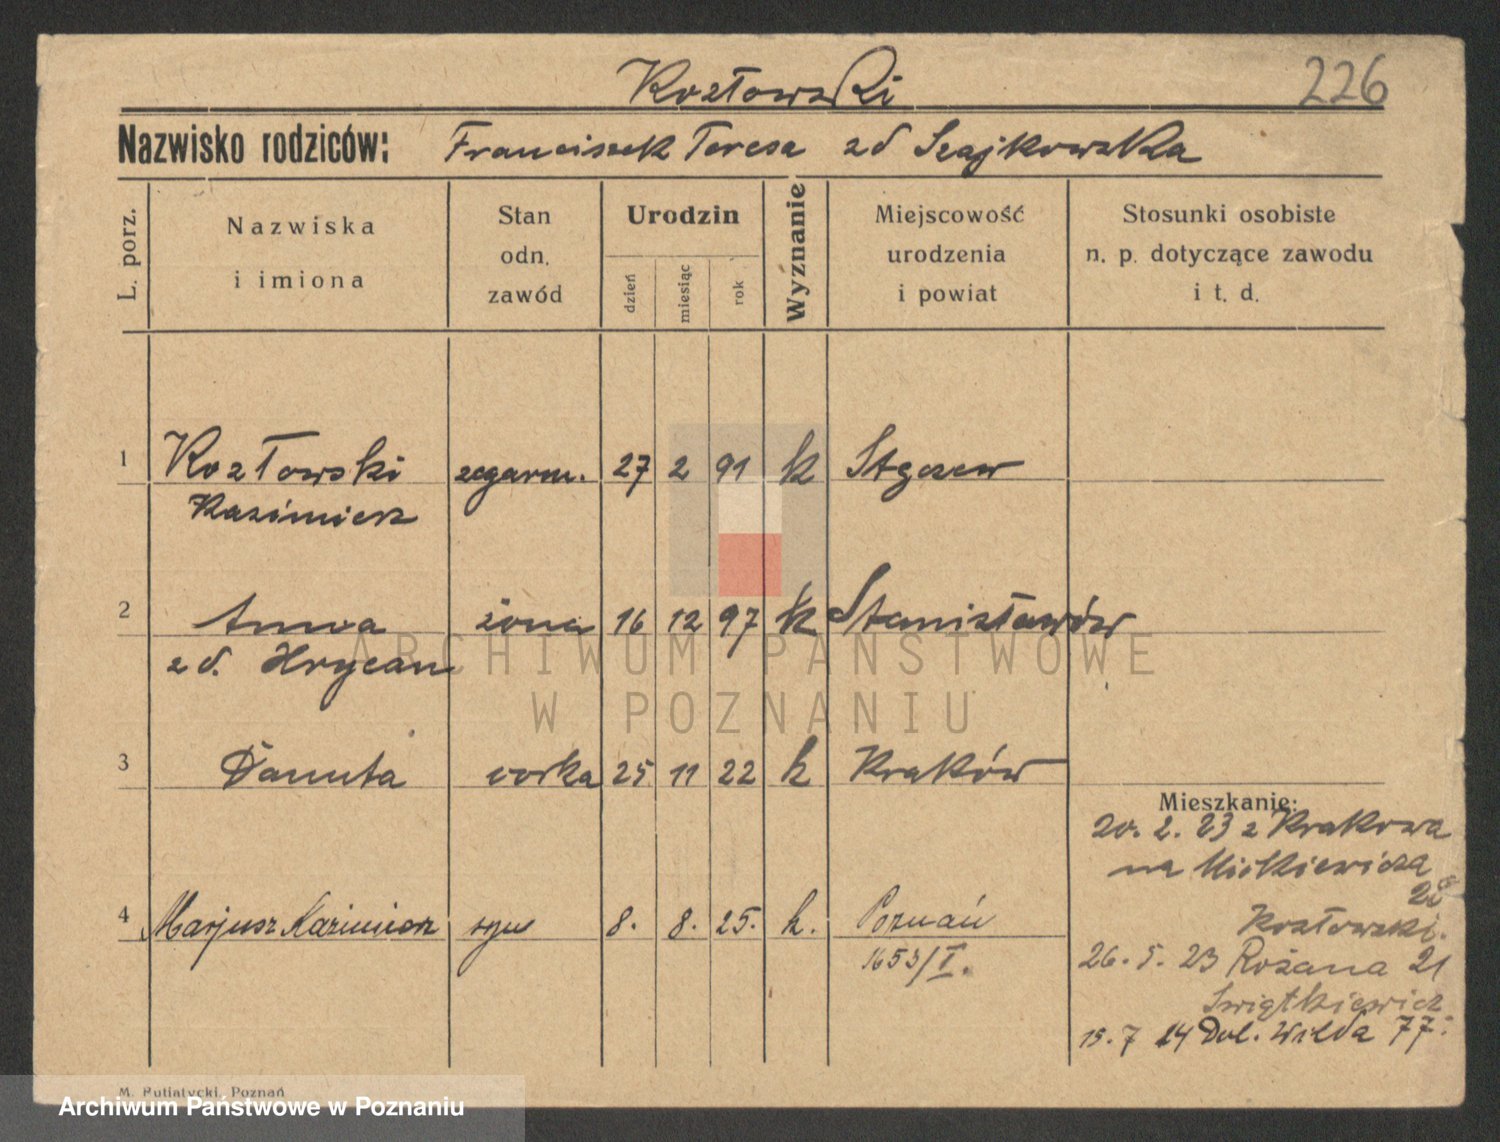 Kozłowski
226
Nazwisko rodziców: Franciszek Teresa zd Szajkowska
L. porz.
Nazwiska i imiona
Stan odn. zawód
Urodzin
dzień
miesiąc
rok
Wyznanie
Miejscowość urodzenia i powiat
Stosunki osobiste n. p. dotyczące zawodu i t. d.
1 Kozłowski zegarm. 27 2 91 k Stęszew
Kazimierz
2 Anna żona 16 12 97 k Stanisławów
zd. Hrycan
3 Danuta corka 25 11 22 k Kraków
Mieszkanie:
20. 2. 23 z Krakowa
na Mickiewicza
4 Marjusz Kazimierz syn 8. 8. 25. k. Poznań
1653/I.
Kozłowski.
26. 5. 23 Rożana 21
Swiątkiewicz
15. 7 24 Dol. Wilda 77.
M. Putiatycki, Poznań
ARCHIWUM PAŃSTWOWE
W POZNANIU
Archiwum Państwowe w Poznaniu